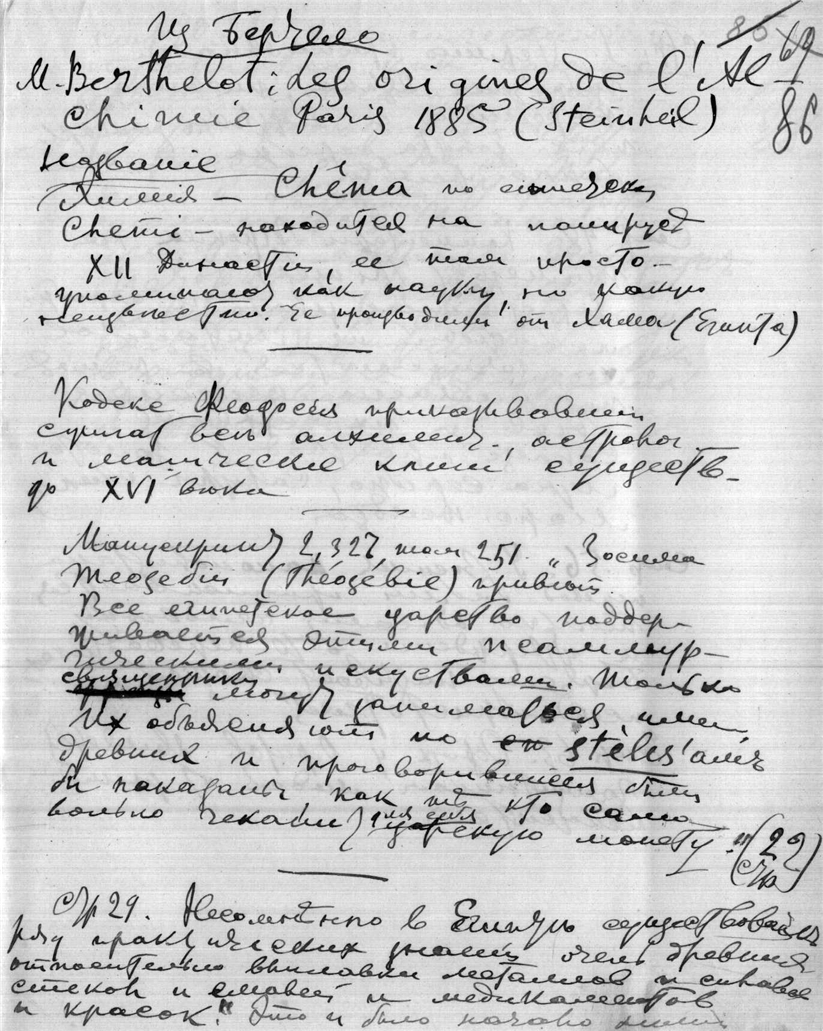 Из Берчело
80 69
M. Berthelot: Les origines de l'Al-
chimie Paris 1885 (Steinheil)
86
Названіе
Химия – Chêma по египетски
Chemi – находится на папирусѣ
XII Династіи, ее там просто
упоминают как науку, но какую
неизвѣстно. Ее производили от Хама (Египта)
Кодекс Феодосія приказывавший
сжигат всѣ алхимич. астролог.
и магическіе книги, существ.
до XVI вѣка
Манускрипт 2,327, том 251. „Зосима
Теозебіи (Théosébie) привѣт.
Все египетское царство поддер-
живается этими псаммур-
гическими искуствами. Только
священники могут заниматься ими,
Их объясняют по stèles'амъ
древних и проговорившіеся были
бы наказаны как тѣ кто само
вольно чеканит для себя царскую монету." (22
стр)
Стр 29. Несомнѣнно в Египтѣ существовалъ
ряд практических знаній очень древних
относительно выплавки металлов и сплавов
стекол и эмалей и медикаментов
и красок." Это и было начало химіи